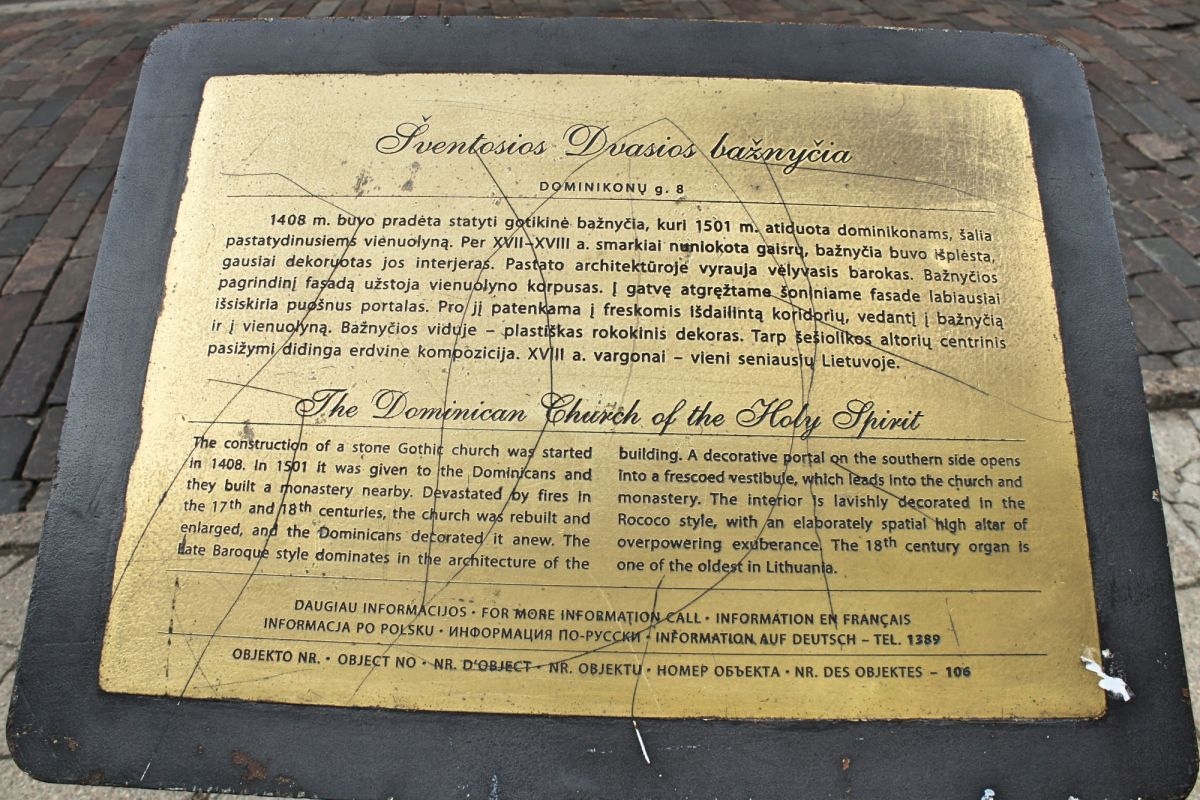 Šventosios Dvasios bažnyčia
DOMINIKONŲ g. 8
1408 m. buvo pradėta statyti gotikinė bažnyčia, kuri 1501 m. atiduota dominikonams, šalia
pastatydinusiems vienuolyną. Per XVII–XVIII a. smarkiai nuniokota gaisrų, bažnyčia buvo išplėsta,
gausiai dekoruotas jos interjeras. Pastato architektūroje vyrauja vėlyvasis barokas. Bažnyčios
pagrindinį fasadą užstoja vienuolyno korpusas. Į gatvę atgręžtame šoniniame fasade labiausiai
išsiskiria puošnus portalas. Pro jį patenkama į freskomis išdailintą koridorių, vedantį į bažnyčią
ir į vienuolyną. Bažnyčios viduje – plastiškas rokokinis dekoras. Tarp šešiolikos altorių centrinis
pasižymi didinga erdvine kompozicija. XVIII a. vargonai – vieni seniausių Lietuvoje.
The Dominican Church of the Holy Spirit
The construction of a stone Gothic church was started
in 1408. In 1501 it was given to the Dominicans and
they built a monastery nearby. Devastated by fires in
the 17th and 18th centuries, the church was rebuilt and
enlarged, and the Dominicans decorated it anew. The
Late Baroque style dominates in the architecture of the
building. A decorative portal on the southern side opens
into a frescoed vestibule, which leads into the church and
monastery. The interior is lavishly decorated in the
Rococo style, with an elaborately spatial high altar of
overpowering exuberance. The 18th century organ is
one of the oldest in Lithuania.
DAUGIAU INFORMACIJOS · FOR MORE INFORMATION CALL · INFORMATION EN FRANÇAIS
INFORMACJA PO POLSKU · ИНФОРМАЦИЯ ПО-РУССКИ · INFORMATION AUF DEUTSCH – TEL. 1389
OBJEKTO NR. · OBJECT NO · NR. D'OBJECT · NR. OBJEKTU · НОМЕР ОБЪЕКТА · NR. DES OBJEKTES – 106